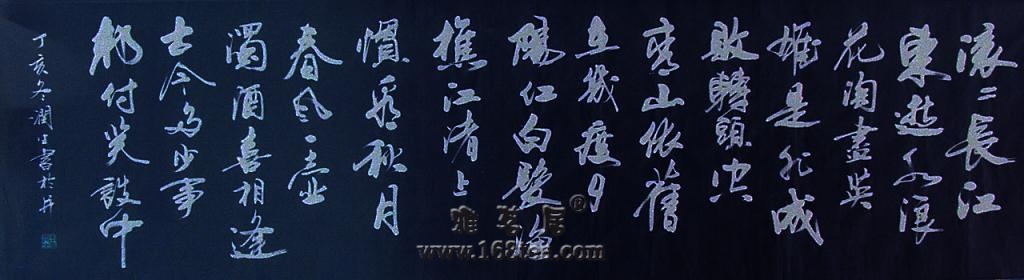 滚〻長江
東逝水浪
花淘盡英
雄是非成
敗轉頭空
青山依舊
在幾度夕
陽红白髮漁
樵江渚上
慣看秋月
春风一壶
濁酒喜相逢
古今多少事
都付笑談中
丁亥冬潤生書於井
雅茗居®
www.168tea.com